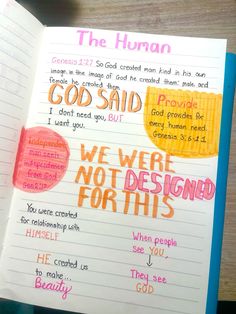 The Human
Genesis 1:27 So God created man kind in his own
image, in the image of God he created them: male and
female he created them
GOD SAID
I don't need you, BUT
I want you.
Provide
God provides for
every human need.
Genesis 3:6 & 11
independence
man seeks
independence
from God
Gen 2:17
WE WERE
NOT DESIGNED
FOR THIS
You were created
for relationship with
HIMSELF
HE created us
to make...
Beauty
When people
see YOU
They see
GOD